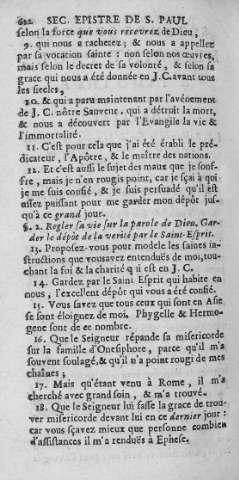 622 SEC. EPISTRE DE S. PAUL
selon la force que vous recevrez de Dieu,
9. qui nous a rachetez; & nous a appellez
par sa vocation sainte: non selon nos œuvres,
mais selon le decret de sa volonté, & selon sa
grace qui nous a été donnée en J.C. avant tous
les siecles,
10. & qui a paru maintenant par l'avénement
de J. C. nôtre Sauveur, qui a détruit la mort,
& nous a découvert par l'Evangile la vie &
l'immortalité.
11. C'est pour cela que j'ai été établi le pré-
dicateur, l'Apôtre, & le maître des nations.
12. Et c'est aussi le sujet des maux que je souf-
fre, mais je n'en rougis point, car je sçai à qui
je me suis confié, & je suis persuadé qu'il est
assez puissant pour me garder mon dépôt jus-
qu'à ce grand jour.
§. 2. Regler sa vie sur la parole de Dieu. Gar-
der le dépôt de la verité par le Saint-Esprit.
13. Proposez-vous pour modele les saines in-
structions que vous avez entendués de moi, tou-
chant la foi & la charité qui est en J. C.
14. Gardez par le Saint Esprit qui habite en
nous, l'excellent dépôt qui vous a été confié.
15. Vous savez que tous ceux qui sont en Asie
se sont éloignez de moi. Phygelle & Hermo-
gene sont de ce nombre.
16. Que le Seigneur répande sa misericorde
sur la famille d'Onesiphore, parce qu'il m'a
souvent soulagé, & qu'il n'a point rougi de mes
chaînes;
17. Mais qu'étant venu à Rome, il m'a
cherché avec grand soin, & m'a trouvé.
18. Que le Seigneur lui fasse la grace de trou-
ver misericorde devant lui en ce dernier jour:
car vous sçavez mieux que personne combien
d'assistances il m'a rendues à Ephese.